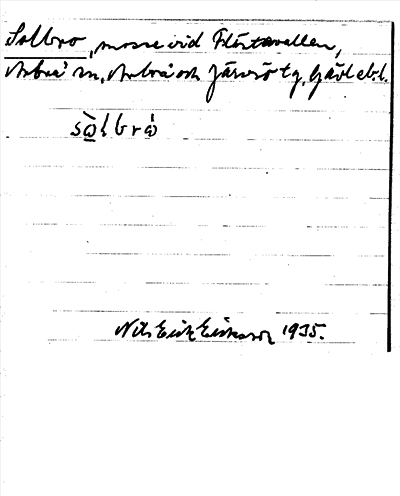 Solbro, mosse vid Flörtarvallen,
Arbrå sn, Arbrå och Järvsö tg, Gävlebl.
sò̱lbrȧ
Nils Erik Eriksson 1935.